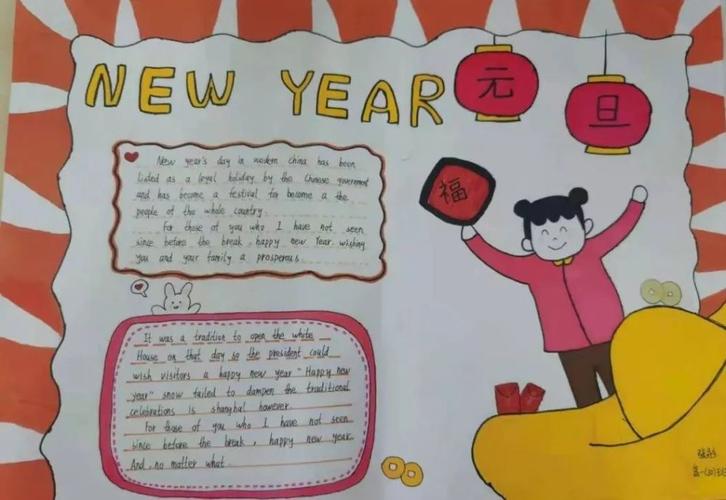 NEW YEAR
元旦
福
New year's day in modern China has been
listed as a legal holiday by the Chinese government
and has become a festival for become a the
people of the whole country.
For those of you who I have not seen
since before the break, happy new Year. wishing
you and your family a prosperous
It was a tradition to open the white
House on that day so the president could
wish visitors a happy new year "Happy new
year" snow failed to dampen the traditional
celebrations is shanghai however.
For those of you who I have not seen
since before the break, happy new year.
And, no matter what.